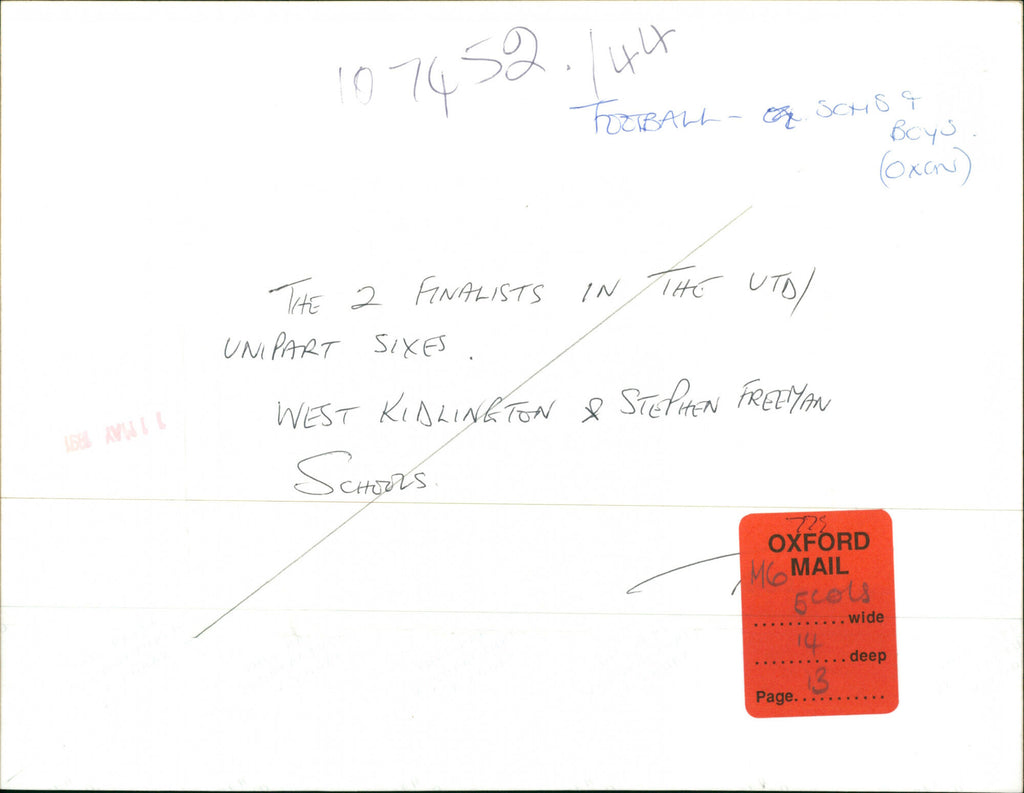 107452./44
FOOTBALL - SCHS &
BOYS.
(OXON)
THE 2 FINALISTS IN THE UTD/
UNIPART SIXES.
WEST KIDLINGTON & STEPHEN FREEMAN
SCHOOLS.
11 MAY 1991
OXFORD
MAIL
M6
5 COLS
...........wide
14
...........deep
Page 13...........